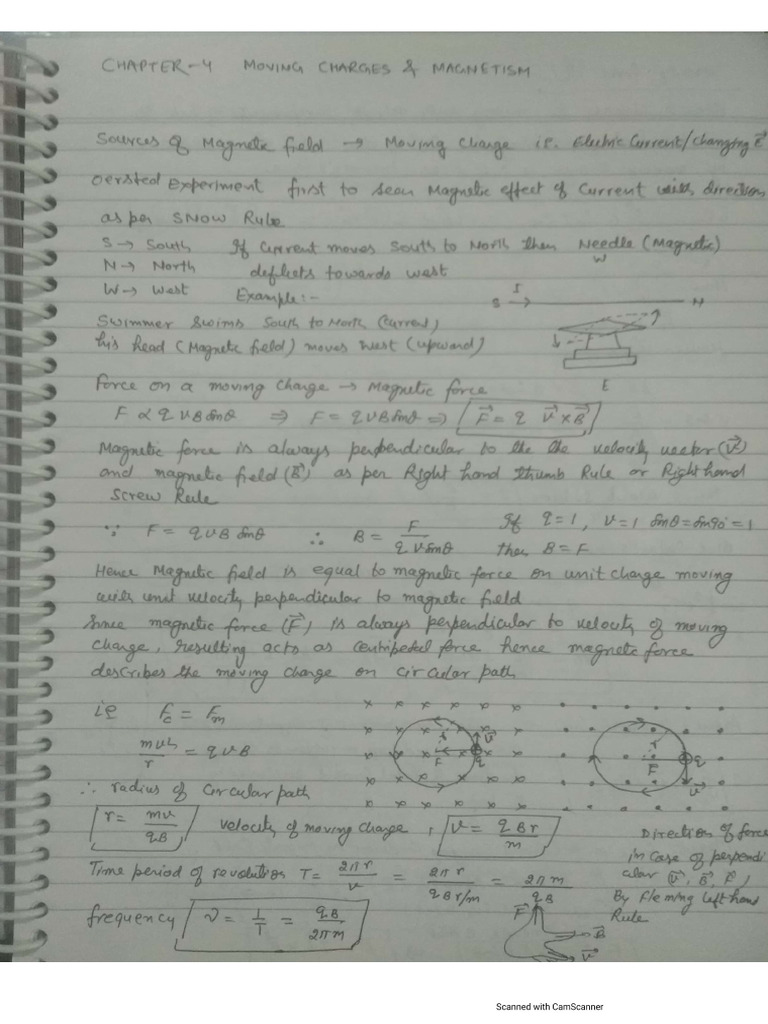 CHAPTER-4 MOVING CHARGES & MAGNETISM
Sources of Magnetic field → Moving Charge i.e. Electric Current/Changing E⃗
Oersted Experiment first to seen Magnetic effect of Current with direction
as per SNOW Rule
S → South If Current moves South to North then Needle (Magnetic)
N → North deflects towards west
W
W → West Example:-
I
S N
Swimmer Swims South to North (Current)
his head (Magnetic field) moves West (upward)
E
Force on a moving Charge → Magnetic force
F ∝ qVB sinθ ⇒ F = qVB sinθ ⇒ F⃗ = q V⃗×B⃗
Magnetic force is always perpendicular to the the velocity vector (V⃗)
and magnetic field (B⃗) as per Right hand thumb Rule or Right hand
Screw Rule
∵ F = qVB sinθ ∴ B = F / qV sinθ If q=1, V=1 sinθ = sin90° = 1
then B = F
Hence Magnetic field is equal to magnetic force on unit charge moving
with unit velocity perpendicular to magnetic field
Since magnetic force (F⃗) is always perpendicular to velocity of moving
charge, resulting acts as centripetal force hence magnetic force
describes the moving charge on circular path
ie Fc = Fm
mv²/r = qVB
r F q V⃗
r F q V⃗
∴ radius of Circular path
r = mv/qB velocity of moving charge, V = qBr/m
Direction of force
in case of perpendi
cular (V⃗, B⃗, F⃗)
By Fleming left hand
Rule
Time period of revolution T = 2πr/v = 2πr/qBr/m = 2πm/qB
frequency ν = 1/T = qB/2πm
F⃗ B⃗ V⃗
Scanned with CamScanner